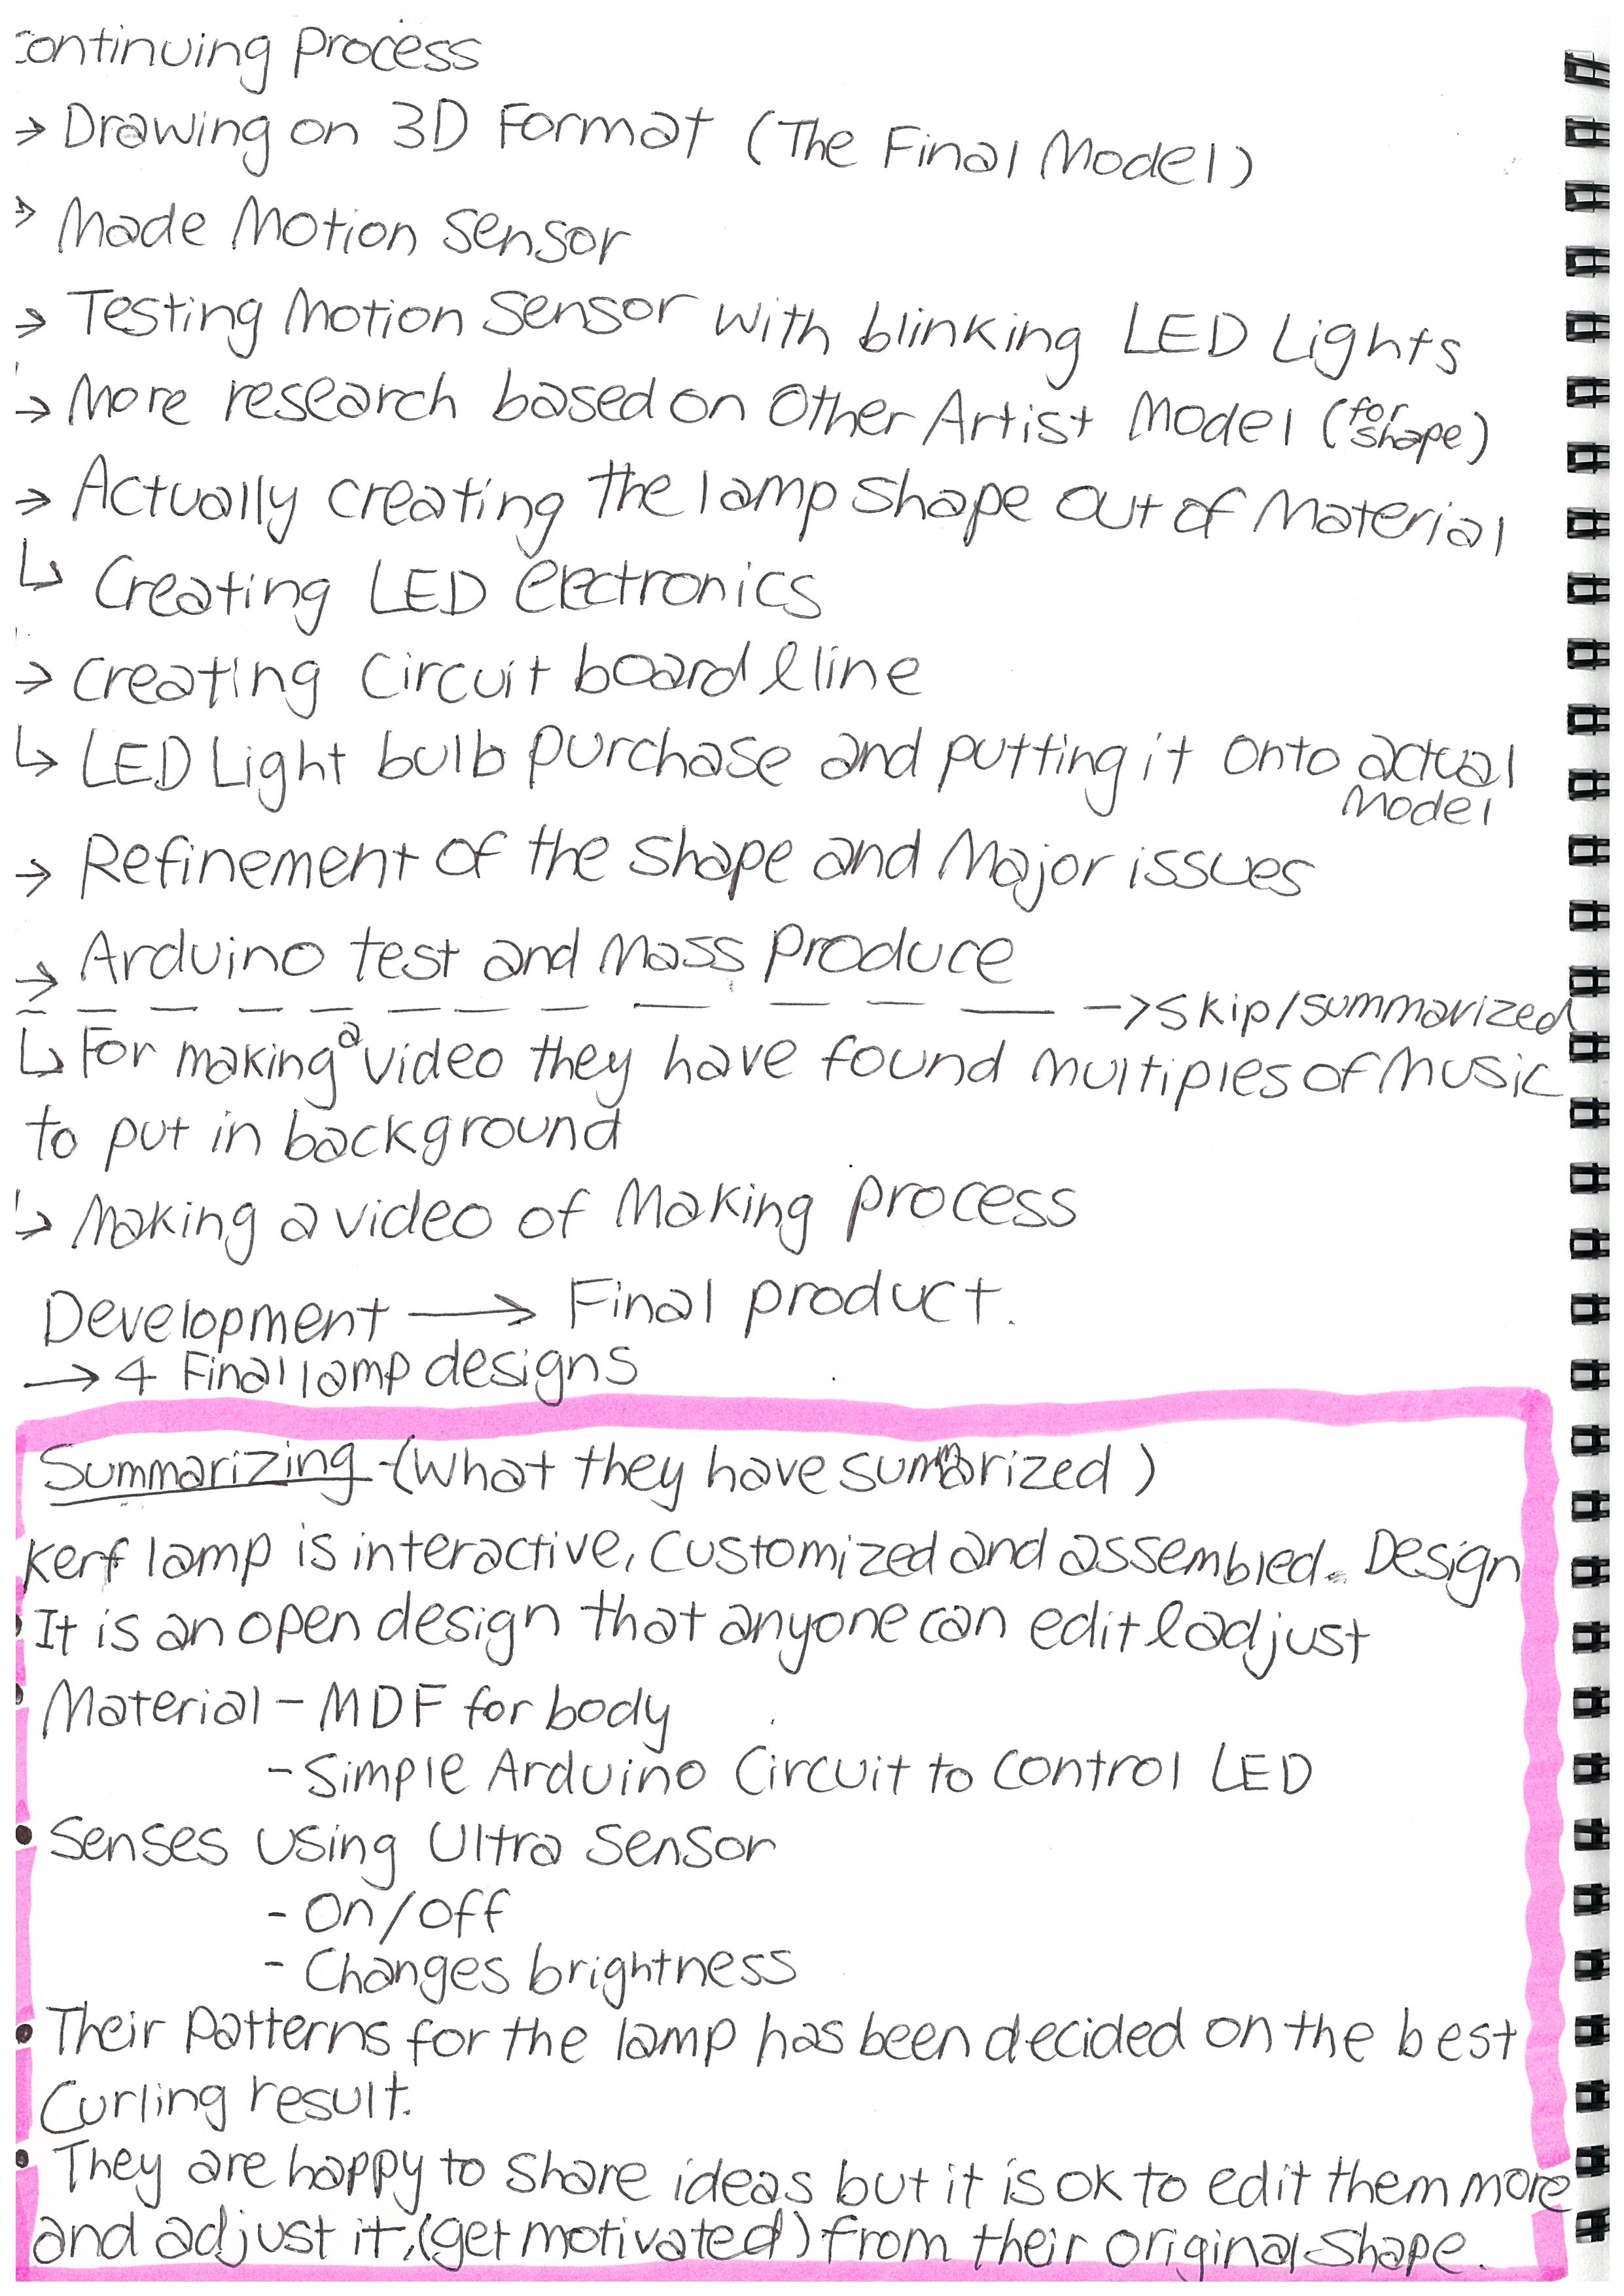 continuing process
→ Drawing on 3D Format (The Final Model)
→ Made Motion Sensor
→ Testing Motion Sensor with blinking LED Lights
→ More research based on Other Artist Model (for shape)
→ Actually creating the lamp shape out of Material
↳ Creating LED electronics
→ creating circuit board & line
↳ LED Light bulb purchase and putting it onto actual
Model
→ Refinement of the shape and Major issues
→ Arduino test and Mass produce
→ skip/summarized
↳ For making a video they have found multiples of Music
to put in background
↳ Making a video of Making process
Development → Final product.
→ 4 Final lamp designs
Summarizing - (what they have summarized)
Kerf lamp is interactive, customized and assembled. Design
• It is an open design that anyone can edit & adjust
• Material - MDF for body
- Simple Arduino Circuit to control LED
• Senses using Ultra Sensor
- On/Off
- Changes brightness
• Their patterns for the lamp has been decided on the best
curling result.
• They are happy to share ideas but it is ok to edit them more
and adjust it, (get motivated) from their original shape.